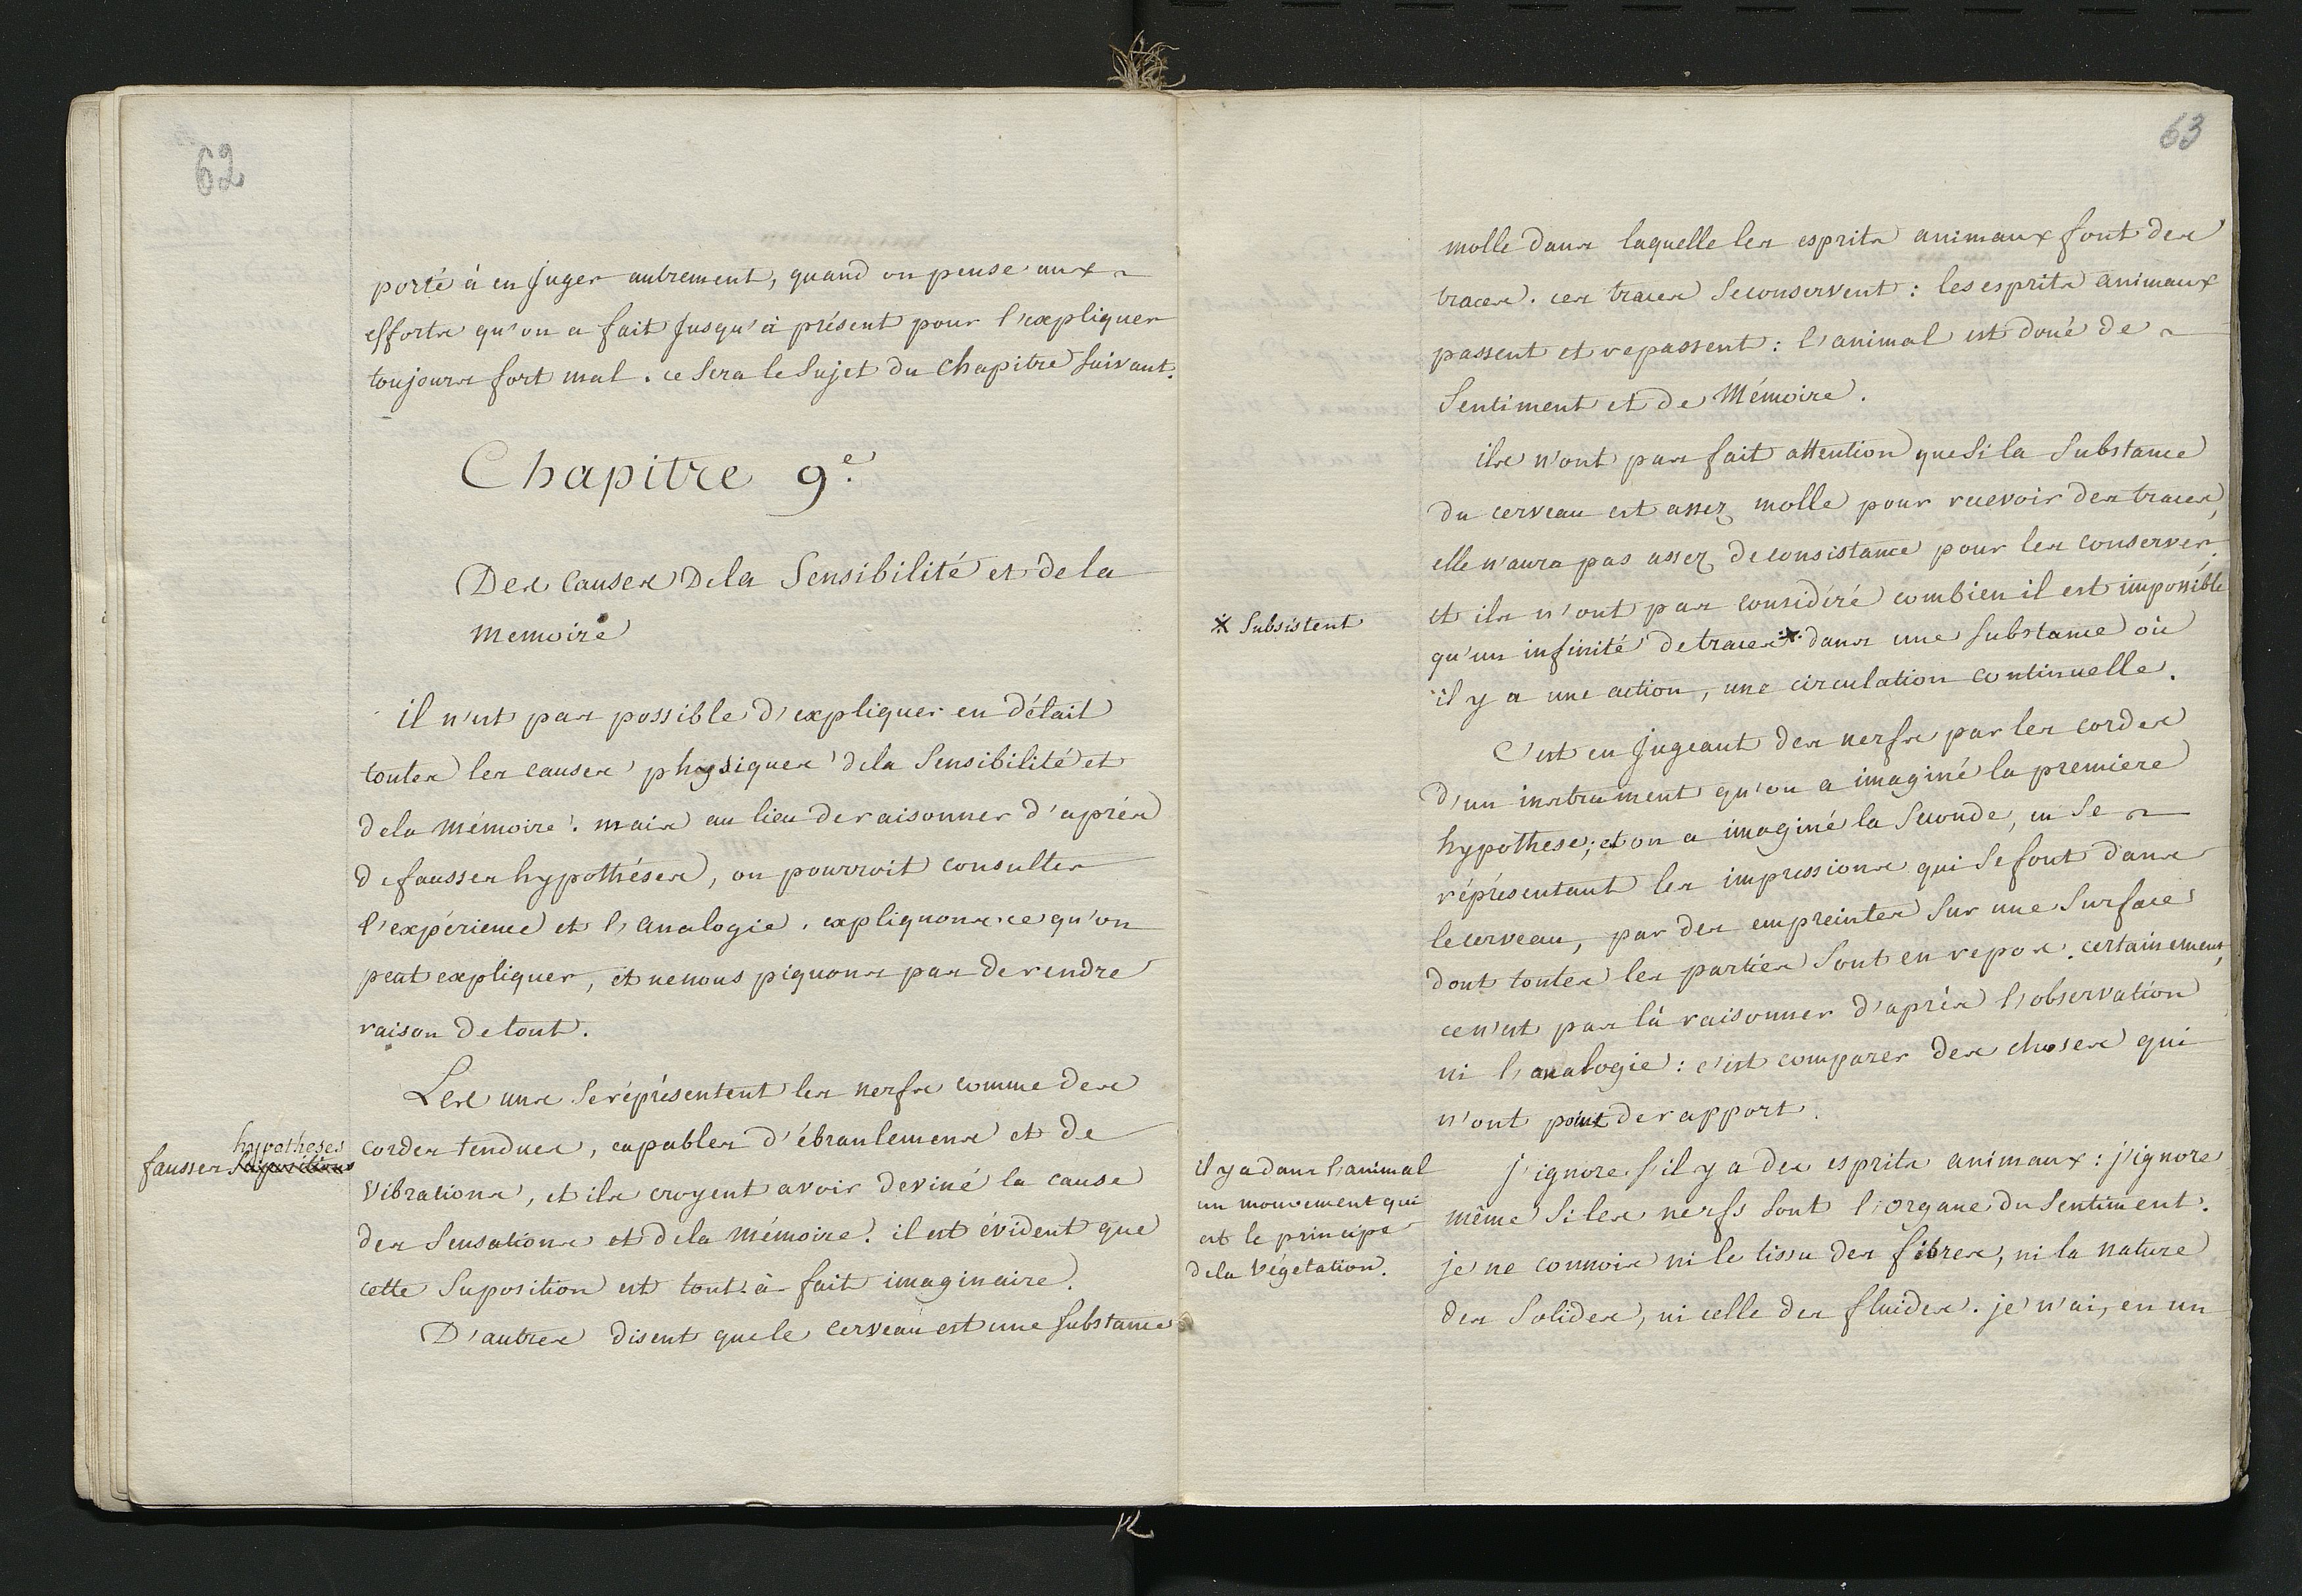 62
porté à en juger autrement, quand on pense aux
efforts qu'on a fait jusqu'à présent pour l'expliquer
toujours fort mal. ce sera le sujet du chapitre suivant.
Chapitre 9.e
Des causes De la Sensibilité et de la
memoire
il n'est pas possible d'expliquer en détait
toutes les causes physiques de la Sensibilité et
de la mémoire. mais au lieu de raisonner d'après
de fausses hypothéses, on pourroit consulter
l'expérience et l'analogie. expliquons ce qu'on
peut expliquer, et ne nous piquons pas de rendre
raison de tout.
Les uns se réprésentent les nerfs comme des
hypotheses
fausses Supositions
cordes tendues, capables d'ébranlemens et de
vibrations, et ils croyent avoir deviné la cause
des Sensations et de la mémoire. il est évident que
cette Suposition est tout-à-fait imaginaire.
D'autres disent que le cerveau est une substance
63
molle dans laquelle les esprits animaux font des
traces. ces traces se conservent : les esprits animaux
passent et repassent : l'animal est doué de
Sentiment et de Mémoire.
ils n'ont pas fait attention que si la Substance
du cerveau est assez molle pour recevoir des traces,
elle n'aura pas assez de consistance pour les conserver.
et ils n'ont pas considéré combien il est impossible
* Subsistent
qu'un infinité de traces * dans une substance où
il y a une action, une circulation continuelle.
C'est en jugeant des nerfs par les cordes
d'un instrument qu'on a imaginé la premiere
hypothese; et on a imaginé la Seconde, en se
réprésentant les impressions qui se font dans
le cerveau, par des empreintes sur une surface
dont toutes les parties sont en repos. certainement,
ce n'est pas là raisonner d'après l'observation
ni l'analogie : c'est comparer des choses qui
n'ont point de rapport.
il y a dans l'animal
un mouvement qui
est le principe
de la végétation.
j'ignore s'il y a des esprits animaux : j'ignore
même si les nerfs sont l'organe du Sentiment.
je ne connois ni le tissu des fibres, ni la nature
des Solides, ni celle des fluides. je n'ai, en un